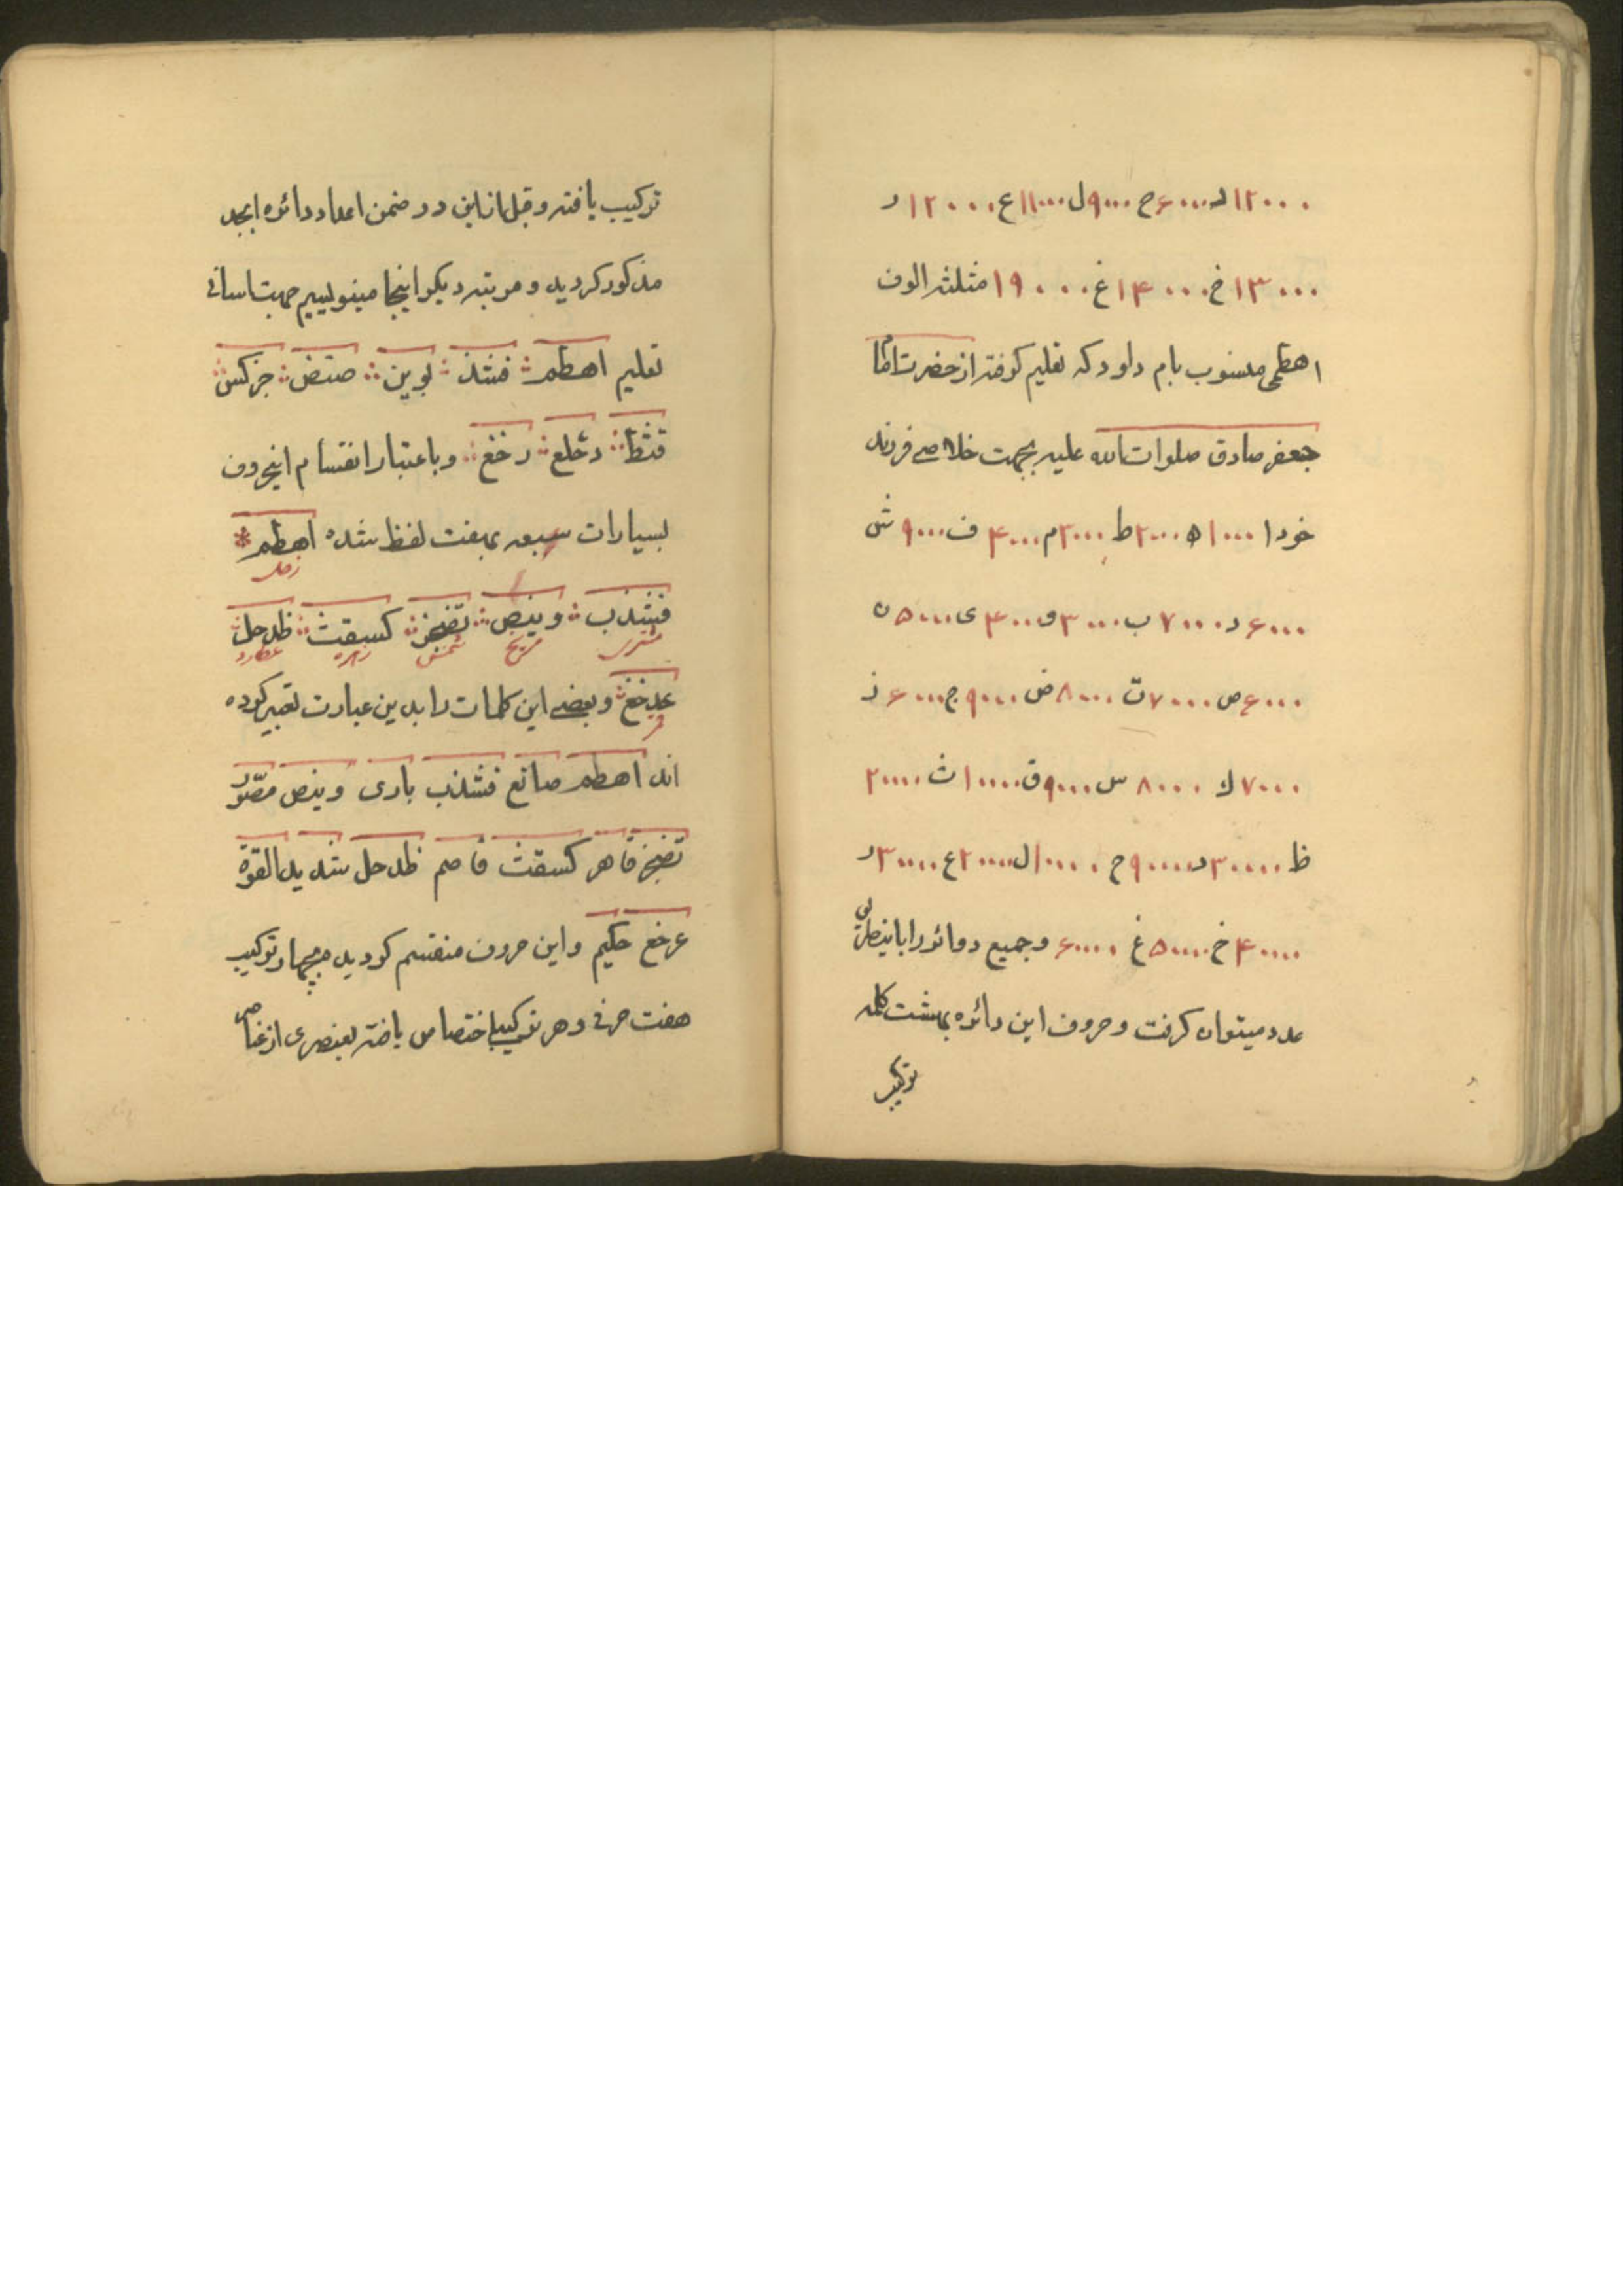 ۱۲۰۰۰ د ۶۰۰۰ ح ۹۰۰۰ ل ۱۱۰۰۰ ع ۱۲۰۰۰ ر
۱۳۰۰۰ خ ۱۴۰۰۰ غ ۱۹۰۰۰ مثلثه الوف
اهطمی منسوب بام داود که تعلیم کرفته از حضرت امام
جعفر صادق صلوات الله علیه بجهت خلاصی فرزند
خود ا ۱۰۰۰ ه ۲۰۰۰ ط ۳۰۰۰ م ۴۰۰۰ ف ۹۰۰۰ ش
۶۰۰۰ ذ ۷۰۰۰ ب ۳۰۰۰ و ۴۰۰۰ ی ۵۰۰۰ ن
۶۰۰۰ ص ۷۰۰۰ ت ۸۰۰۰ ض ۹۰۰۰ ج ۶۰۰۰ ز
۷۰۰۰ ك ۸۰۰۰ س ۹۰۰۰ ق ۱۰۰۰۰ ث ۲۰۰۰۰
ظ ۳۰۰۰۰ د ۹۰۰۰۰ ح ۱۰۰۰۰ ل ۲۰۰۰۰ ع ۳۰۰۰۰ ر
۴۰۰۰۰ خ ۵۰۰۰۰ غ ۶۰۰۰۰ وجمیع دوائر را باین طریق
عدد میتوان کرفت وحروف این دائره بهشت کلمه
ترکیب
ترکیب یافته وقبل از این در ضمن اعداد دائره ابجد
مذکور کردید ومرتبه دیکر اینجا مینویسیم جهت اسانی
تعلیم اهطم فشذ بوین صتض جزکس
قثظ دحلع رخغ وباعتبار انقسام اینحروف
بسیارات سبعه بهفت لفظ شده اهطم
زحل
فشذب وینص تضجز کسقث ظدحل
مشتری مریخ شمس زهره عطارد
عرخغ وبعضی این کلمات را بدین عبارت تعبیر کرده
قمر
اند اهطم صانع فشذب باری وینص مصوّر
تضجز قاهر کسقث قاصم ظدحل شدید القوة
عرخغ حکیم واین حروف منقسم کردید بچهار ترکیب
هفت حرفی وهر ترکیب اختصاص یافته بعنصری از عناصر